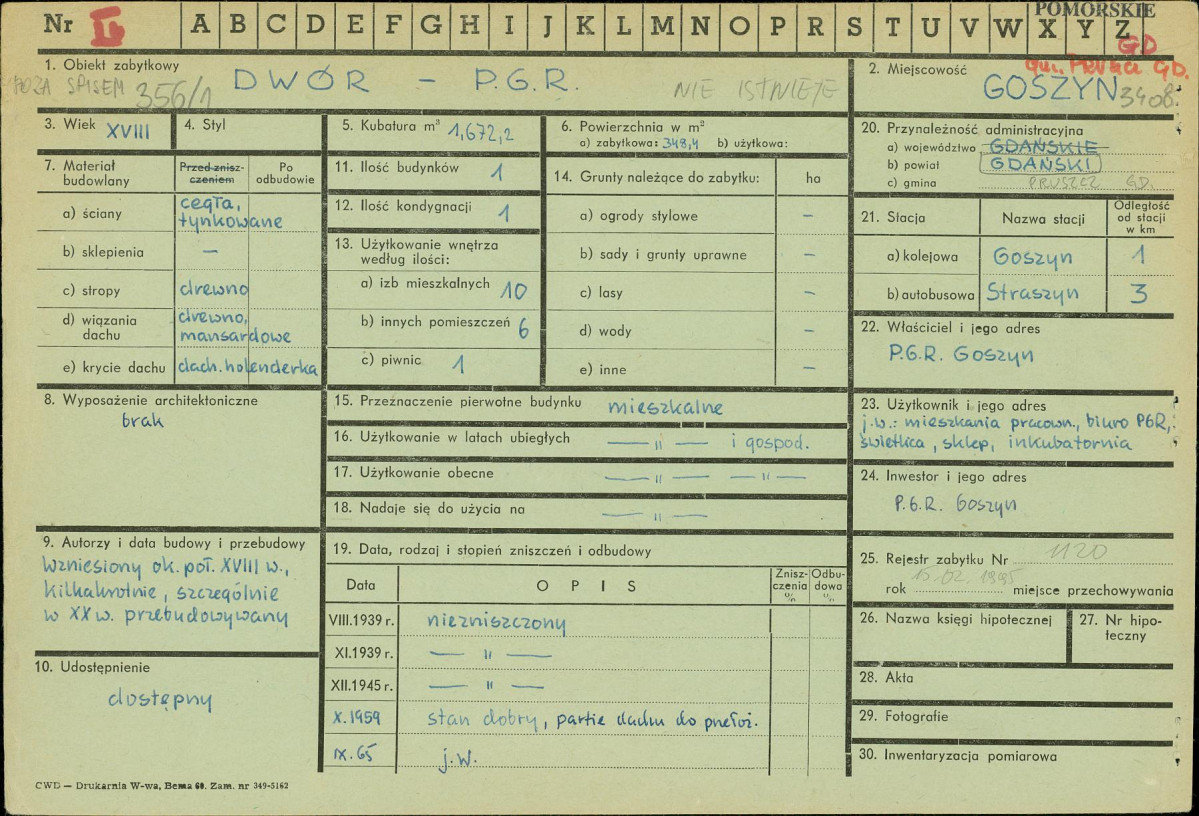 POMORSKIE
Nr I. A B C D E F G H I J K L M N O P R S T U V W X Y Z
GD
gm. PRUSZCZ GD.
1. Obiekt zabytkowy
POZA SPISEM 356/1
DWÓR – P.G.R.
NIE ISTNIEJE
2. Miejscowość
GOSZYN 3408.
3. Wiek XVIII
4. Styl
5. Kubatura m³ 1,672,2
6. Powierzchnia w m²
a) zabytkowa: 348,4 b) użytkowa:
20. Przynależność administracyjna
a) województwo GDAŃSKIE
b) powiat GDAŃSKI
c) gmina PRUSZCZ GD.
7. Materiał budowlany
Przed znisz-
czeniem
Po
odbudowie
a) ściany cegła,
tynkowane
b) sklepienia —
c) stropy drewno
d) wiązania
dachu
drewno,
mansardowe
e) krycie dachu dach. holenderka
11. Ilość budynków 1
12. Ilość kondygnacji 1
13. Użytkowanie wnętrza
według ilości:
a) izb mieszkalnych 10
b) innych pomieszczeń 6
c) piwnic 1
14. Grunty należące do zabytku: ha
a) ogrody stylowe –
b) sady i grunty uprawne –
c) lasy –
d) wody –
e) inne –
21. Stacja Nazwa stacji
Odległość
od stacji
w km
a) kolejowa Goszyn 1
b) autobusowa Straszyn 3
22. Właściciel i jego adres
P.G.R. Goszyn
8. Wyposażenie architektoniczne
brak
15. Przeznaczenie pierwotne budynku mieszkalne
16. Użytkowanie w latach ubiegłych — " — i gospod.
17. Użytkowanie obecne — " — — " —
18. Nadaje się do użycia na — " —
23. Użytkownik i jego adres
j.w.: mieszkania pracown., biuro PGR,
świetlica, sklep, inkubatornia
24. Inwestor i jego adres
P.G.R. Goszyn
9. Autorzy i data budowy i przebudowy
Wzniesiony ok. poł. XVIII w.,
kilkakrotnie, szczególnie
w XX w. przebudowywany
10. Udostępnienie
dostępny
19. Data, rodzaj i stopień zniszczeń i odbudowy
Data OPIS
Znisz-
czenia
%
Odbu-
dowa
%
VIII.1939 r. niezniszczony
XI.1939 r. — " —
XII.1945 r. — " —
X.1959 stan dobry, partie dachu do przełoż.
IX.65 j.w.
25. Rejestr zabytku Nr 1120
rok 15.02.1995 miejsce przechowywania
26. Nazwa księgi hipotecznej
27. Nr hipo-
teczny
28. Akta
29. Fotografie
30. Inwentaryzacja pomiarowa
CWD — Drukarnia W-wa, Bema 60. Zam. nr 349-5162